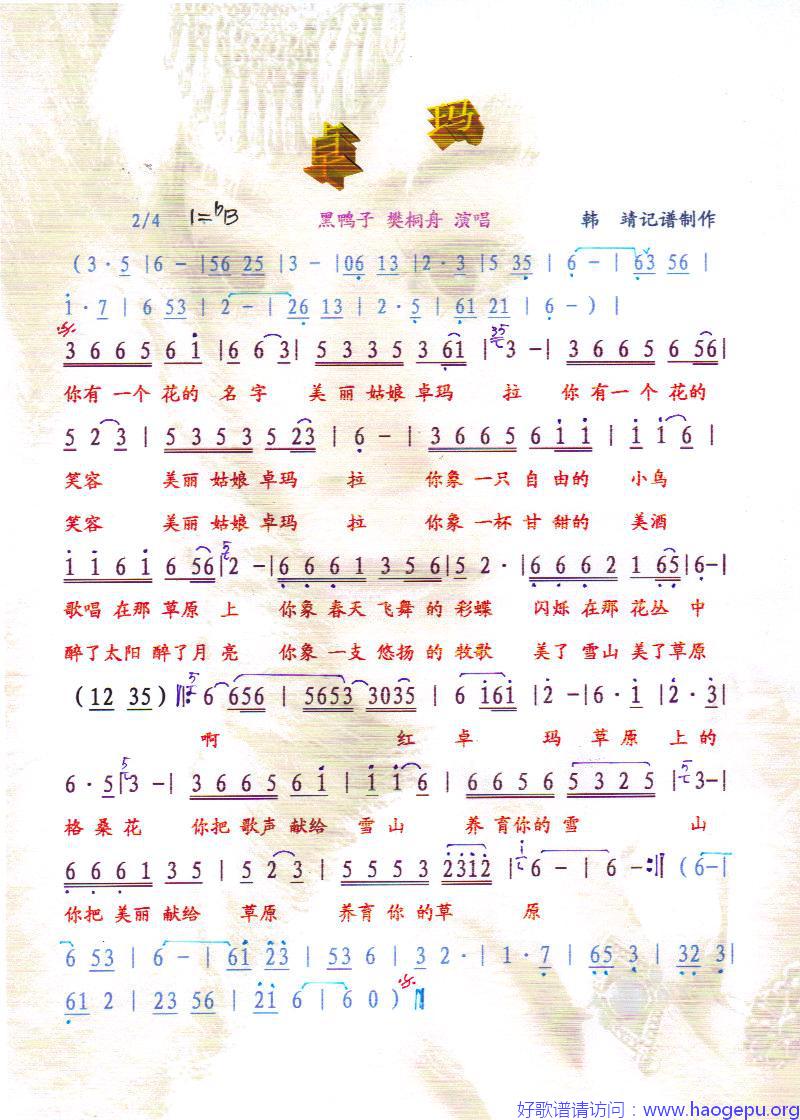 卓 玛
2/4 1=ᵇB 黑鸭子 樊桐舟 演唱 韩 靖记谱制作
(3·5 |6 - |56 25 |3 - |06 13 |2·3 |5 35 |6 - |63 56 |
1·7 | 6 53 | 2 - | 26 13 | 2·5 | 61 21 | 6 - ) |
3 6 6 5 6 1 |6 6 3| 5 3 3 5 3 61 |3 -| 3 6 6 5 6 56|
你有 一个 花的 名字 美丽 姑娘 卓玛 拉 你有一个 花的
5 2 3 | 5 3 5 3 5 23 | 6 - | 3 6 6 5 6 1 1 | 1 1 6 |
笑容 美丽 姑娘 卓玛 拉 你象 一只 自由的 小鸟
笑容 美丽 姑娘 卓玛 拉 你象 一杯 甘甜的 美酒
1 1 6 1 6 56|2 -|6 6 6 1 3 5 6|5 2·|6 6 6 2 1 65|6-|
歌唱 在那 草原 上 你象 春天 飞舞 的 彩蝶 闪烁 在那 花丛 中
醉了太阳 醉了月 亮 你象 一支 悠扬 的 牧歌 美了 雪山 美了草原
(12 35)‖: 6 656 | 5653 3035 | 6 161 |2 -|6·1 |2·3|
啊 红 卓 玛 草 原 上 的
6·5|3 -|3 6 6 5 6 1 |1 1 6 | 6 6 5 6 5 3 2 5 |3-|
格 桑 花 你把 歌声 献给 雪 山 养 育你 的 雪 山
6 6 6 1 3 5 | 5 2 3 | 5 5 5 3 2312 |6 - | 6 -:‖ (6-|
你把 美丽 献给 草原 养育 你 的草 原
6 53 | 6 - | 61 23 | 53 6 | 3 2·| 1·7 | 65 3 | 32 3|
61 2 | 23 56 | 21 6 | 6 0 )‖
好歌谱请访问：www.haogepu.org